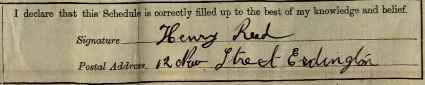 I declare that this Schedule is correctly filled up to the best of my knowledge and belief.
Signature Henry Reed
Postal Address. 12 New Street Erdington